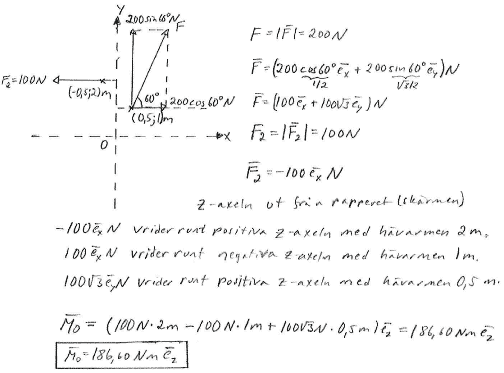 Y
200sin60°N F̄
F̄₂=100N
(-0,5;2)m
60° 200cos60°N
(0,5;1)m
O X
F=|F̄|=200N
F̄=(200cos60°ēₓ+200sin60°ēᵧ)N
1/2 √3/2
F̄=(100ēₓ+100√3ēᵧ)N
F₂=|F̄₂|=100N
F̄₂=-100ēₓN
z-axeln ut från papperet (skärmen)
-100ēₓN vrider runt positiva z-axeln med hävarmen 2m.
100ēₓN vrider runt negativa z-axeln med hävarmen 1m.
100√3ēᵧN vrider runt positiva z-axeln med hävarmen 0,5m.
M̄₀=(100N·2m-100N·1m+100√3N·0,5m)ē_z=186,60Nmē_z
M̄₀=186,60Nmē_z